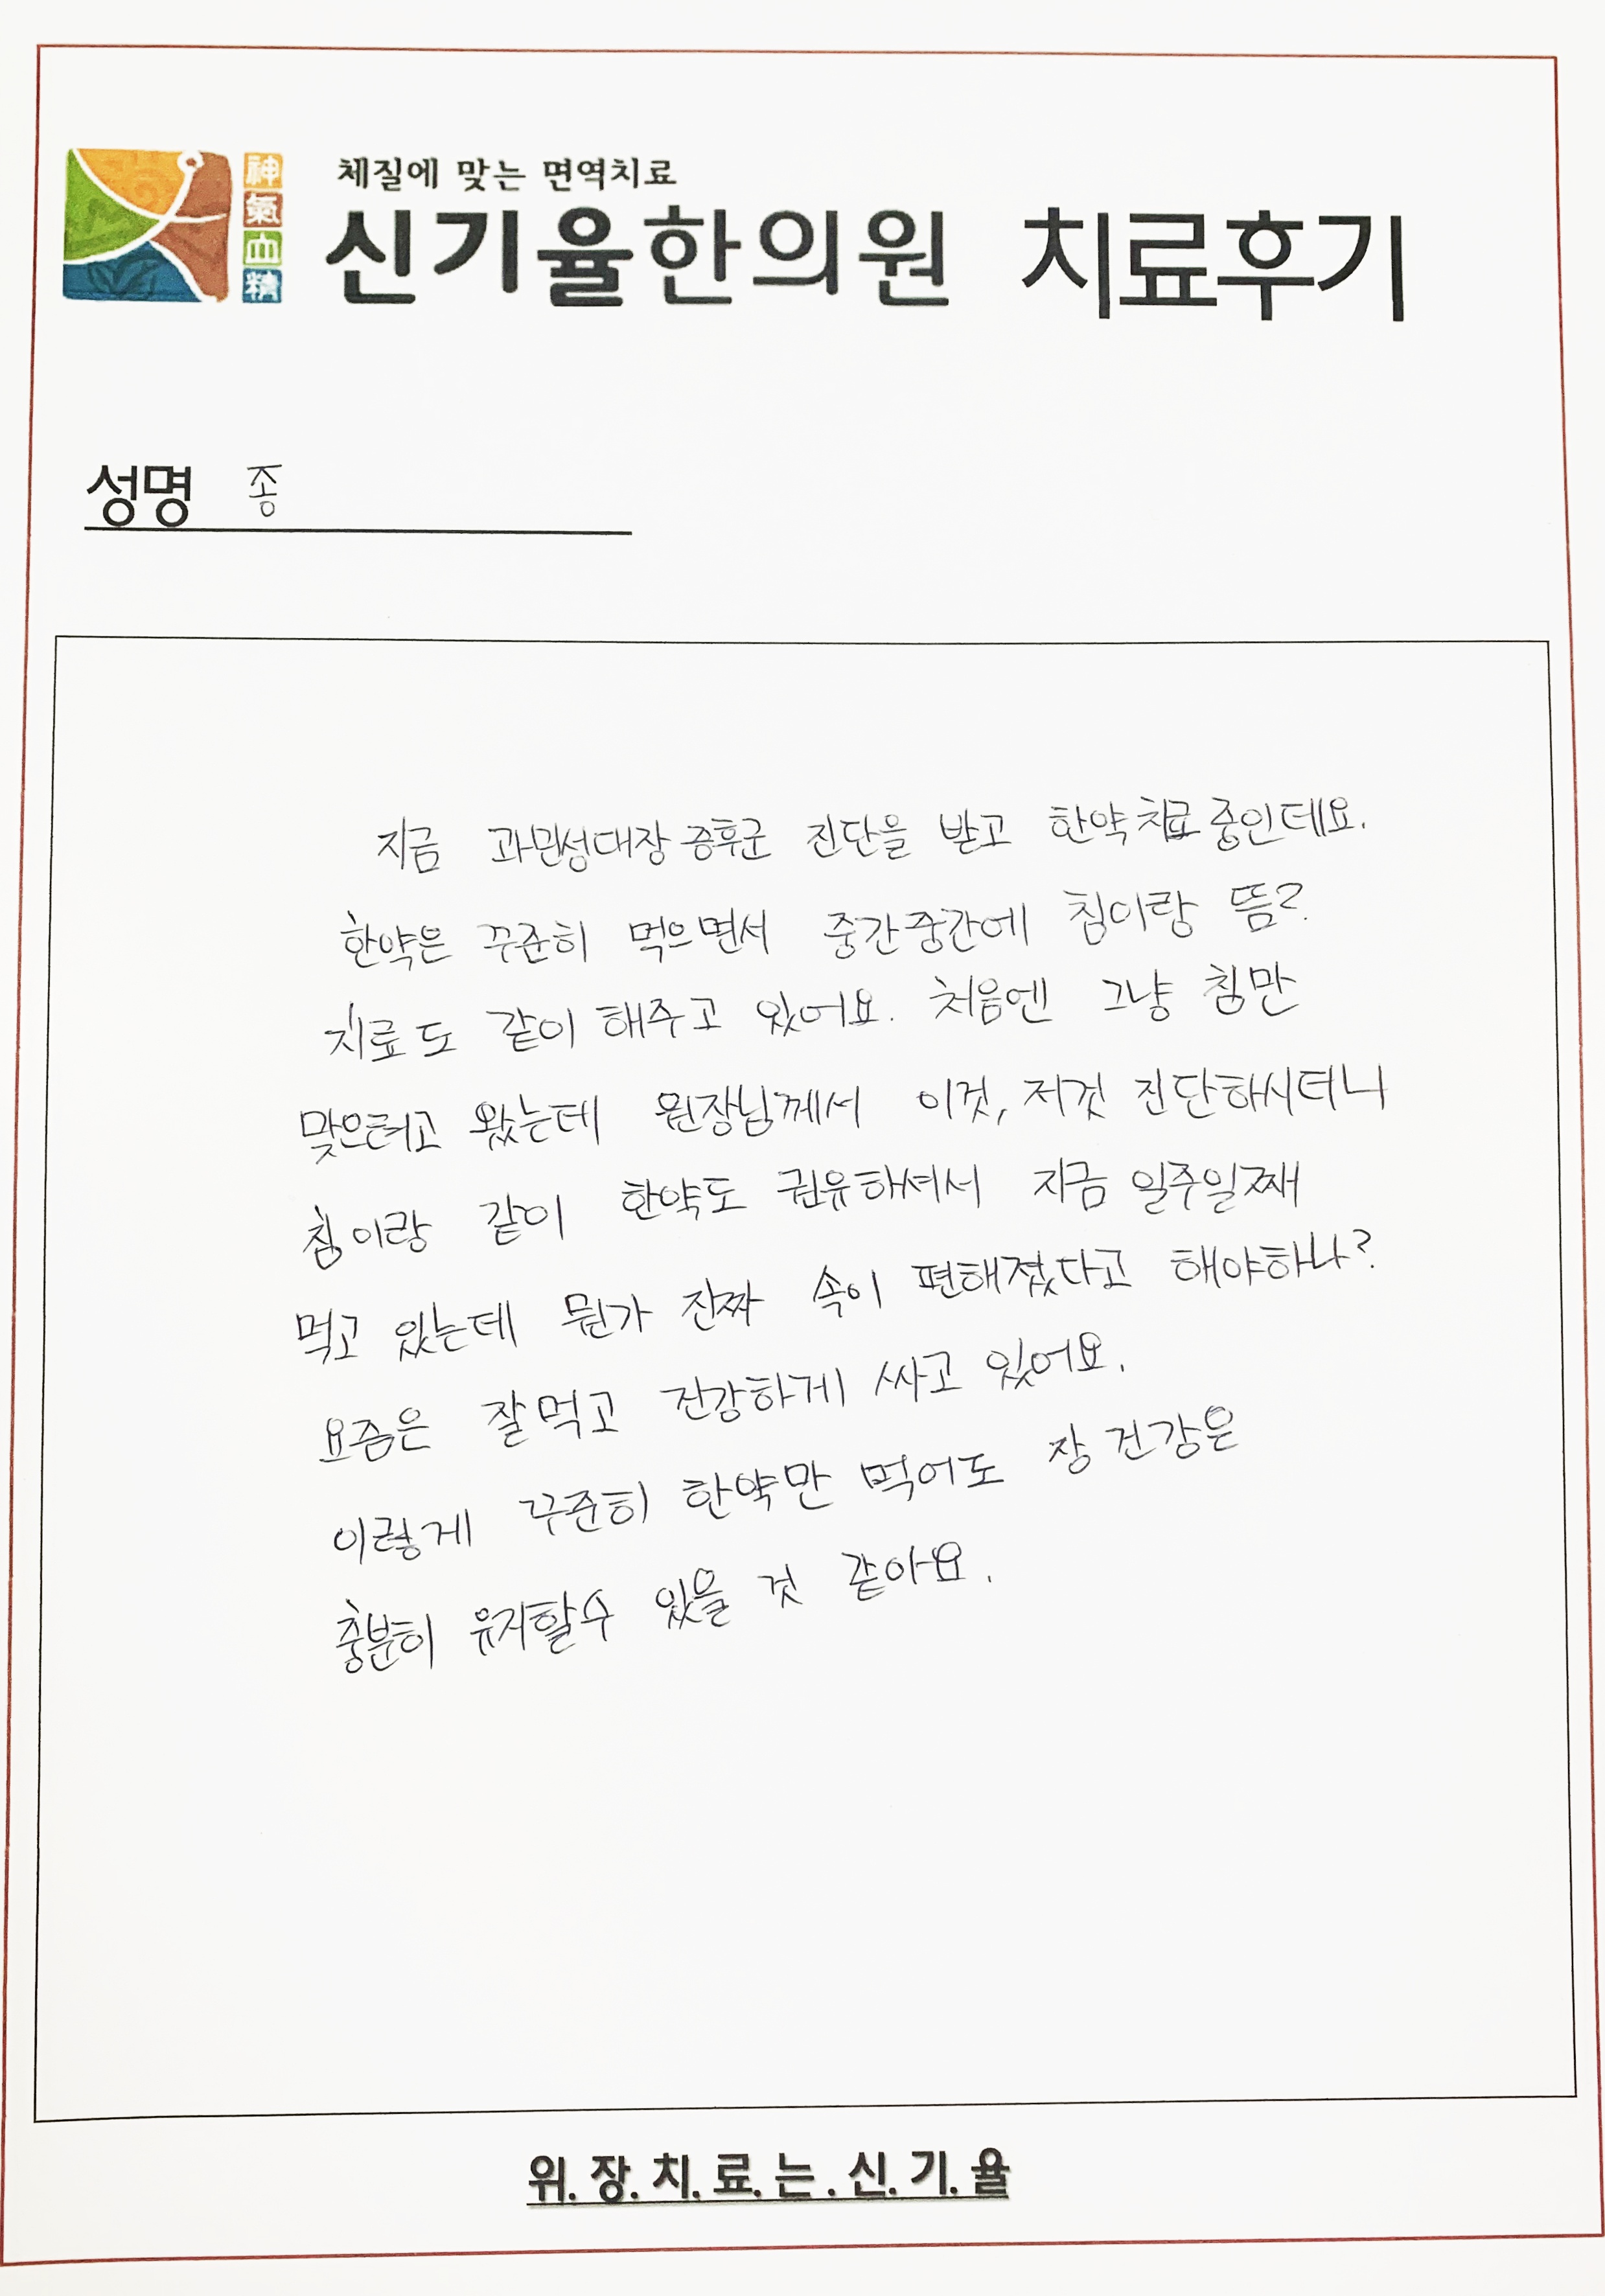 神氣血精
체질에 맞는 면역치료
신기율한의원 치료후기
성명 종
지금 과민성대장증후군 진단을 받고 한약치료중인데요.
한약은 꾸준히 먹으면서 중간중간에 침이랑 뜸?
치료도 같이 해주고 있어요. 처음엔 그냥 침만
맞으려고 왔는데 원장님께서 이것, 저것 진단하시더니
침이랑 같이 한약도 권유하셔서 지금 일주일째
먹고 있는데 뭔가 진짜 속이 편해졌다고 해야하나?
요즘은 잘먹고 건강하게 싸고 있어요.
이렇게 꾸준히 한약만 먹어도 장 건강은
충분히 유지할수 있을 것 같아요.
위.장.치.료.는.신.기.율